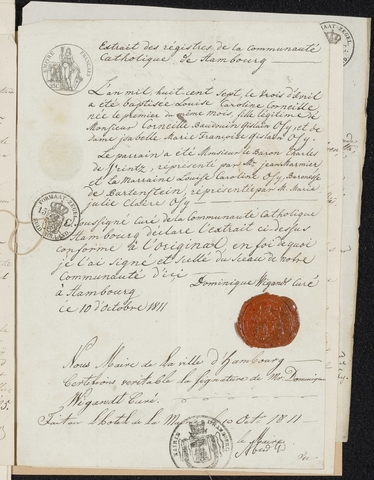 Extrait des régistres de la communauté
Catholique de Hambourg
L'an mil huit-cent sept, le trois d'Avril
a été baptisée Louise Caroline Corneille
née le premier du même mois, fille legitime de
Monsieur Corneille Baudouin Gislain Osy et de
Dame Isabelle Marie Françoise Gislain Osy.
Le parrain a été Monsieur le Baron Charles
de représenté par Mr Jean
et la Marraine Louise Caroline Osy Baronesse
de Bartenstein, représentée par M. Marie
Julie Claire Osy
Soussigné Curé de la Communauté Catholique
Hambourg déclare l'extrait ci-dessus
conforme à l'original, en foi de quoi
je l'ai signé et scellé du Sceau de notre
Communauté d'ici
à Hambourg
ce 10 d'Octobre 1811
Dominique Wigandt Curé
Nous Maire de la ville d'Hambourg
Certifions veritable la Signature de Mr Dominique
Wigandt Curé.
Fait en l'hotel de la 10 Oct 1811
le Maire